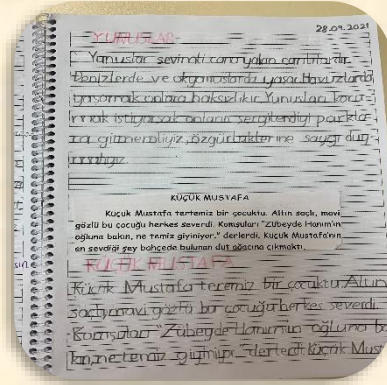 28.09.2021
YUNUSLAR
Yunuslar sevimli cana yakın canlılardır.
Denizlerde ve okyanuslarda yaşar. Havuzlarda
yaşamak onlara haksızlıktır. Yunusları koru-
mak istiyorsak onların sergilendiği parkla-
ra gitmemeliyiz, özgürlüklerine saygı duy-
malıyız.
KÜÇÜK MUSTAFA
Küçük Mustafa tertemiz bir çocuktu. Altın saçlı, mavi
gözlü bu çocuğu herkes severdi. Komşuları "Zübeyde Hanım'ın
oğluna bakın, ne temiz giyiniyor." derlerdi. Küçük Mustafa'nın
en sevdiği şey bahçede bulunan dut ağacına çıkmaktı.
KÜÇÜK MUSTAFA
Küçük Mustafa teremiz bir çocuktu. Altın
saçlı, mavi gözlü bu çocuğu herkes severdi.
Komşuları "Zübeyde Hanım'ın oğluna ba
kın, ne temiz giyiniyor." derlerdi. Küçük Must